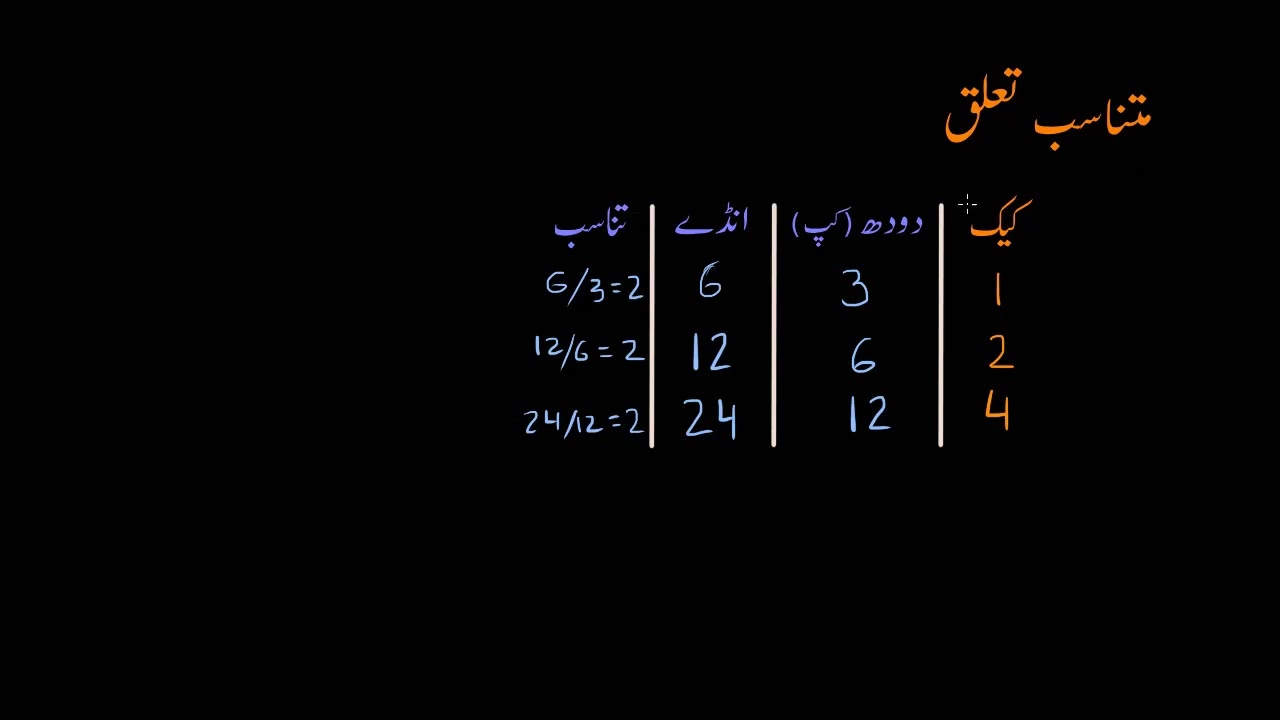 متناسب تعلق
کیک دودھ (کپ) انڈے تناسب
1 3 6 6/3=2
2 6 12 12/6=2
4 12 24 24/12=2